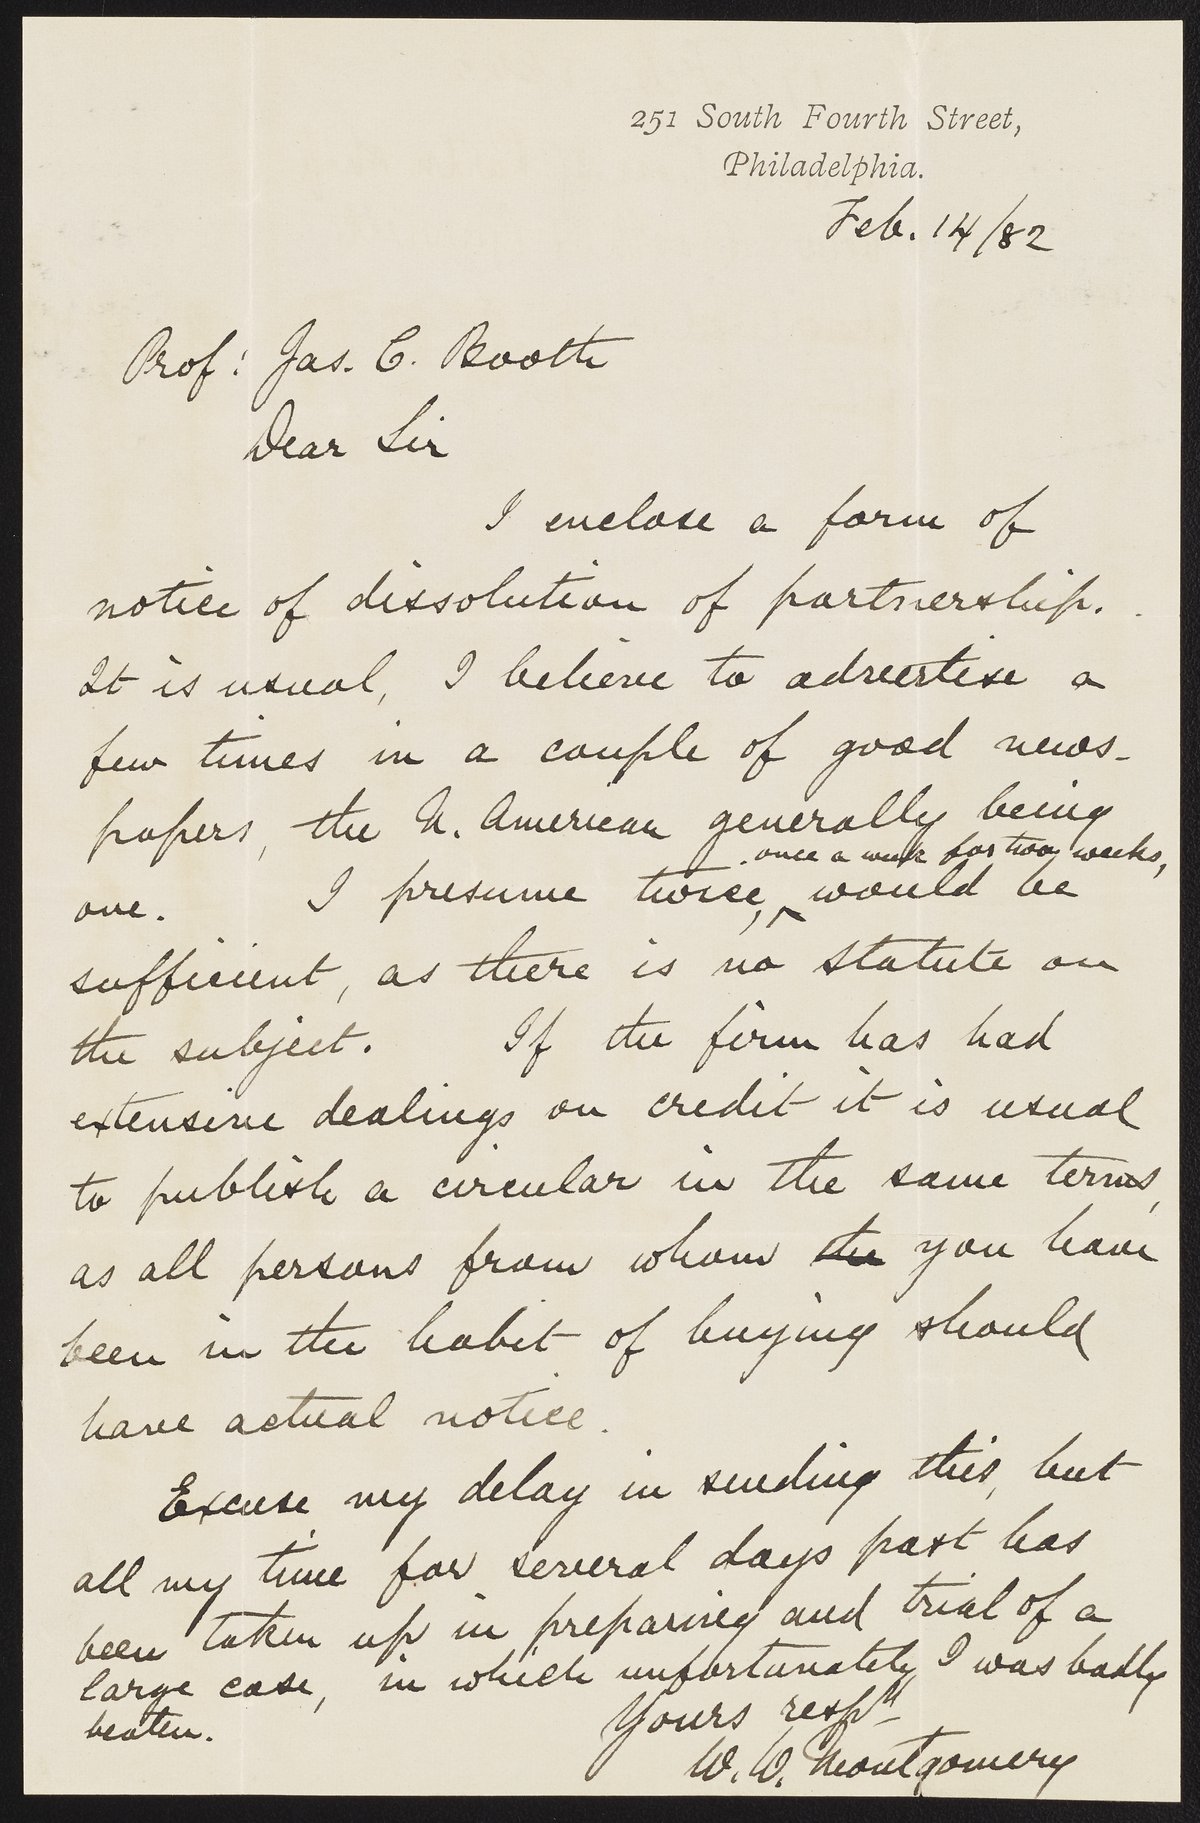 251 South Fourth Street,
Philadelphia.
Feb. 14/82
Prof: Jas. C. Booth
Dear Sir
I enclose a form of
notice of dissolution of partnership.
It is usual, I believe to advertise a
few times in a couple of good news-
papers, the N. American generally being
once a week for two weeks,
one. I presume twice, ^ would be
sufficient, as there is no statute on
the subject. If the firm has had
extensive dealings on credit it is usual
to publish a circular in the same terms,
as all persons from whom the you have
been in the habit of buying should
have actual notice.
Excuse my delay in sending this, but
all my time for several days past has
been taken up in preparing and trial of a
large case, in which unfortunately I was badly
beaten.
Yours respy
W. W. Montgomery